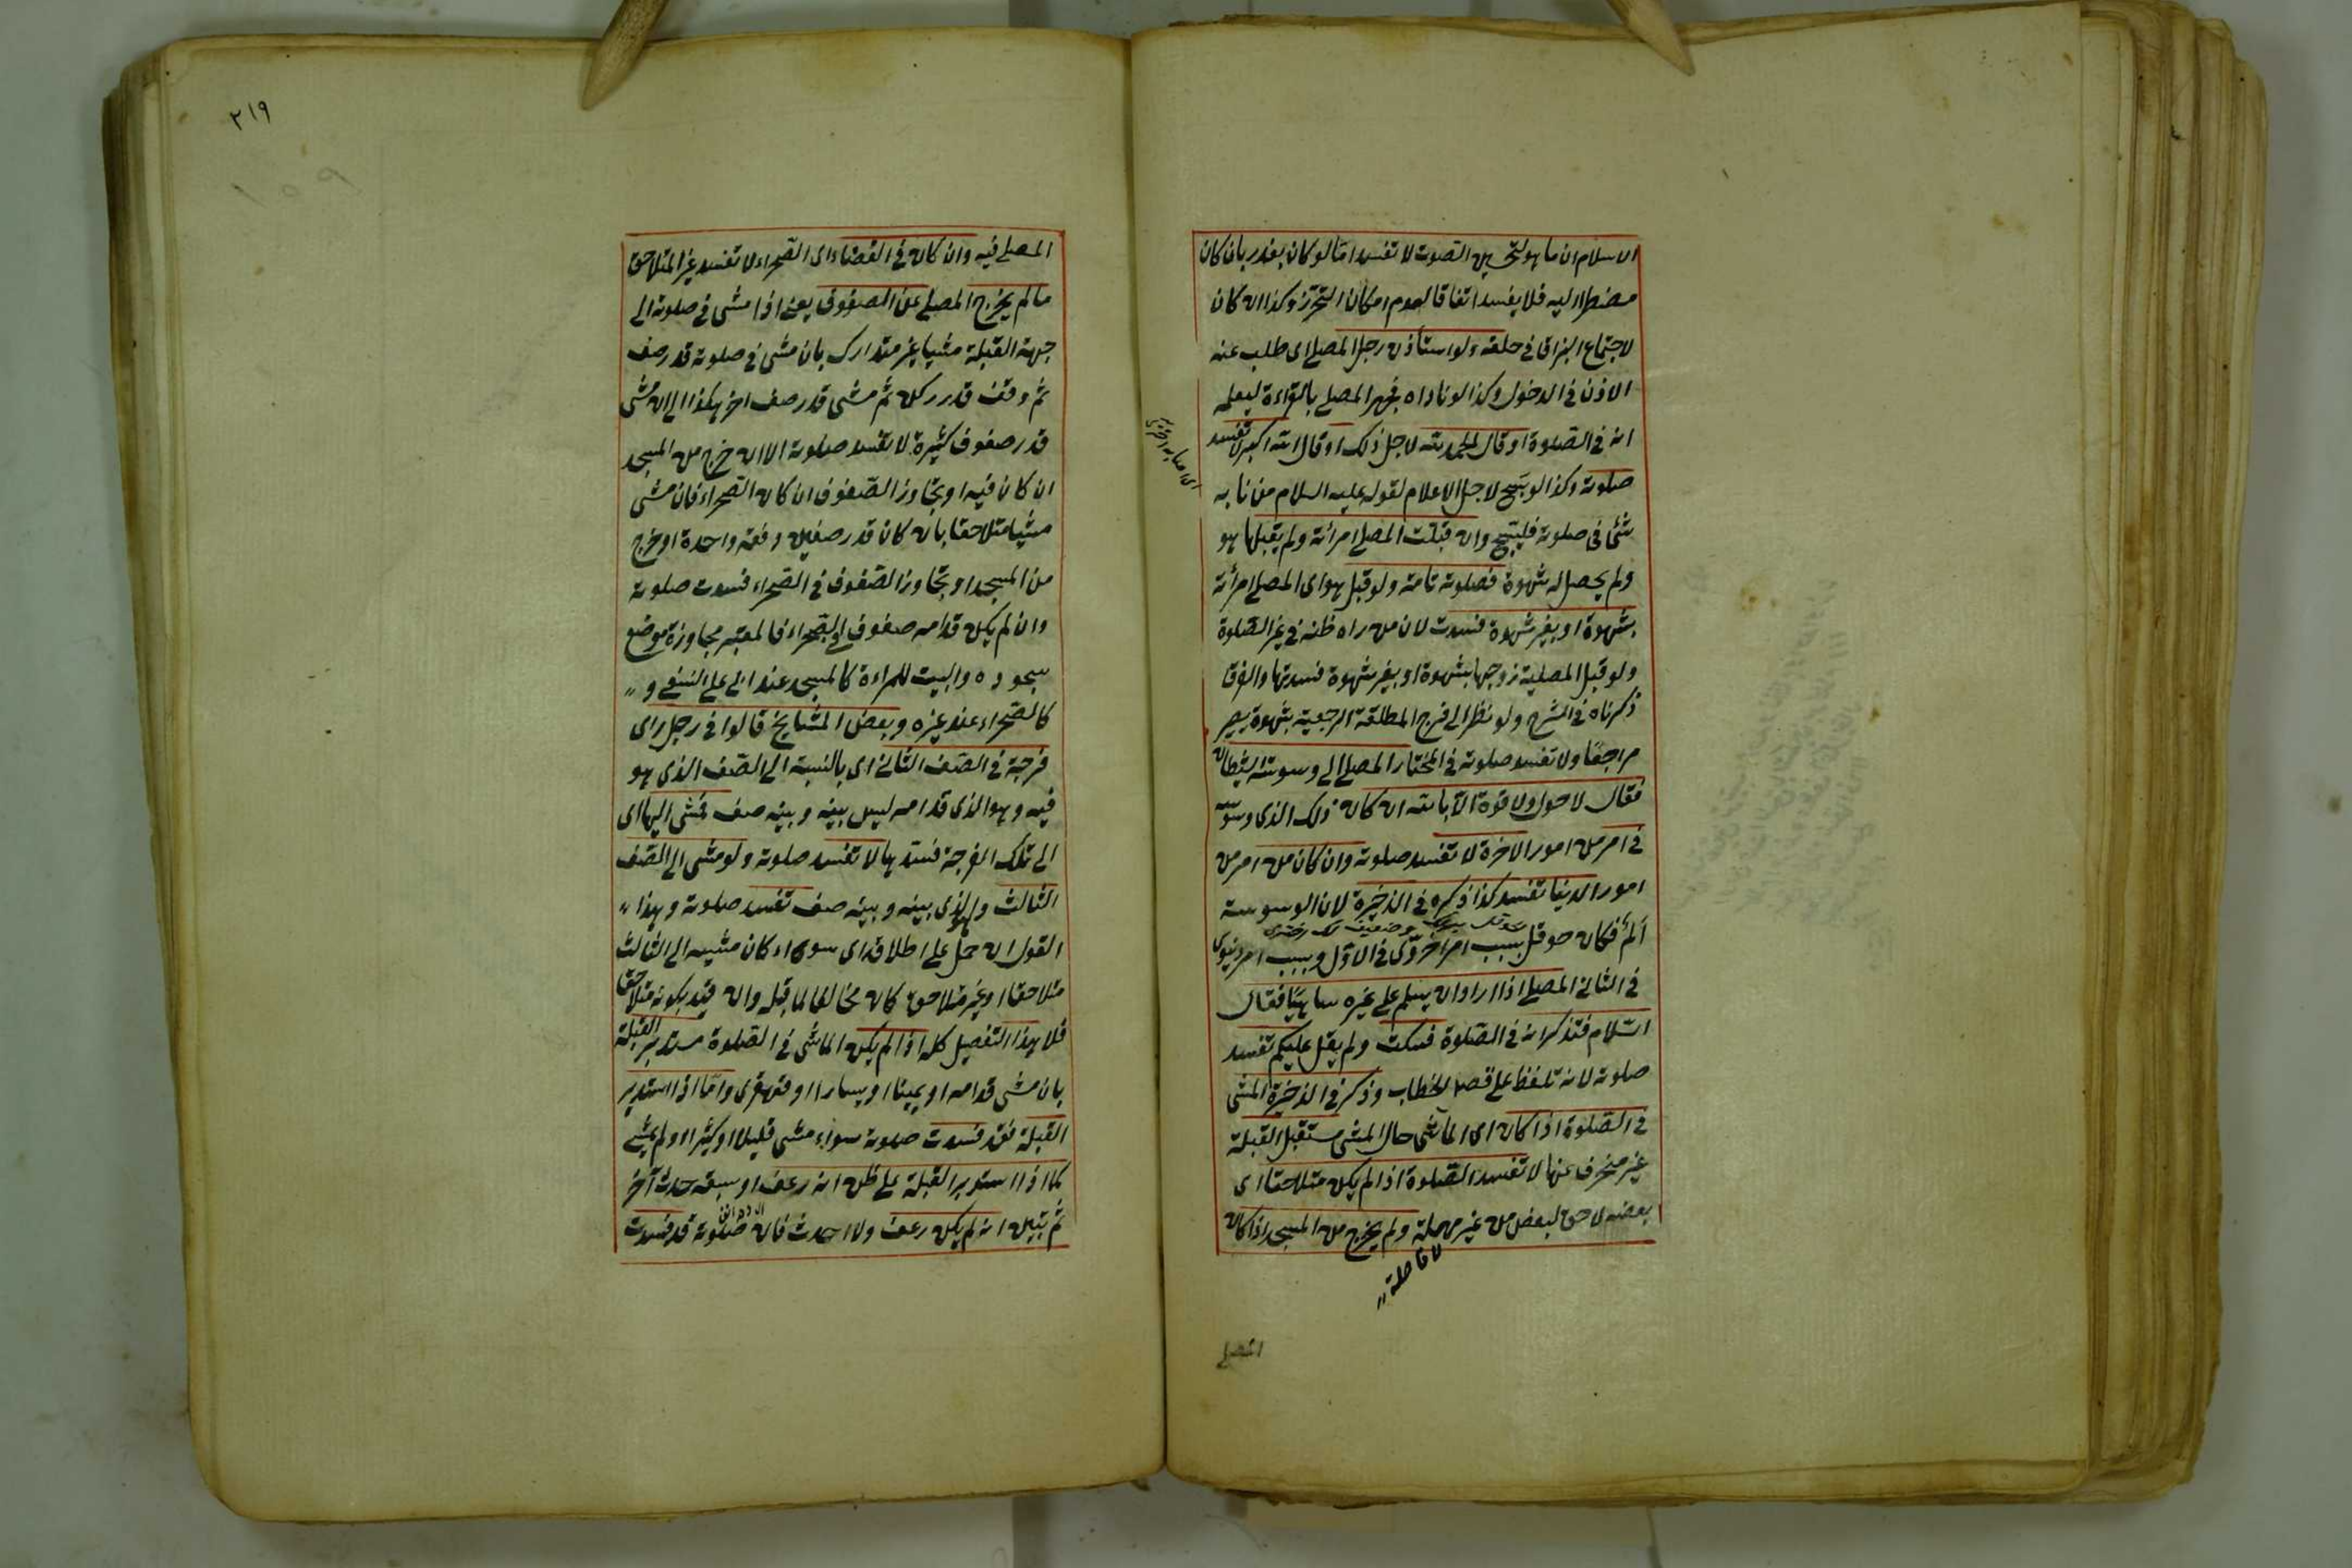 الاسلام ان ما هو لتحسين الصوت لا تفسد امّا لو كان بعذر بان كان
مضطرا اليه فلا يفسد اتفاقا لعدم امكان التحرّز وكذا ان كان
لاجتماع البزاق في حلقه ولو استأذن رجل المصلے ای طلب عنه
الاذن في الدخول وكذا لو ناداه فجهر المصلے بالقراءة ليعلمه
انه في الصلوة او قال الحمد لله لاجل ذلك او قال الله اكبر لا تفسد
صلوته وكذا لو يسبّح لاجل الاعلام لقوله عليه السلام من نابه
شئ في صلوته فليسبّح وان قبّلت المصلے امرأته ولم يقبلها هو
ولم يحصل له شهوة فصلوته تامة ولو قبل هو ای المصلے امرأته
بشهوة او بغير شهوة فسدت لان من راه ظنه في غير الصلوة
ولو قبل المصلية زوجها بشهوة او بغير شهوة فسدتها والفرق ما
ذكرناه في الشرح ولو نظر الى فرج المطلقة الرجعية بشهوة يصير
مراجعًا ولا تفسد صلوته في المختار المصلے الى وسوسة الشيطان
فقال لا حول ولا قوة الّا بالله ان كان ذلك الذی وسوسه
في امر من امور الاخرة لا تفسد صلوته وان كان من امر من
امور الدنيا تفسد كذا ذكره في الذخيرة لان الوسوسة
ألم فكان حوقل بسبب امر اخروّی في الاوّل وبسبب امر دنيوی
في الثاني المصلے اذا اراد ان يسلم على غيره ساهيًا فقال
السّلام فتذكر انه في الصلوة فسكت ولم يقل عليكم تفسد
صلوته لانه تلفظ على قصد الخطاب وذكر في الذخيرة المشی
في الصّلوة اذا كان ای الماشی حال المشی مستقبل القبلة
غير منحرف عنها لا تفسد الصّلوة اذا لم يكن متلاحقا ای
بعضه لاحق لبعض من غير مهملة ولم يخرج من المسجد اذا كان
لا فاصلة
المصلے
٢١٩
المصلے فيه وان كان في الفضاء ای الصحراء لا تفسد غير المتلاحق
ما لم يخرج المصلے عن الصفوف يعنى اذا مشى في صلوته الى
جهة القبلة مشيا غير متدارك بان مشى في صلوته قدر صف
ثمّ وقف قدر ركن ثمّ مشى قدر صف اخر هكذا الى ان مشى
قدر صفوف كثيرة لا تفسد صلوته الا ان خرج من المسجد
ان كان فيه او تجاوز الصّفوف ان كان الصّحراء فان مشى
مشيا متلاحقا بان كان قدر صفين دفعة واحدة او خرج
من المسجد او تجاوز الصّفوف في الصّحراء فسدت صلوته
وان لم يكن قدامه صفوف في الصّحراء فالمعتبر مجاوزة موضع
سجوده والبيت للمرأة كالمسجد عند ابى على النسفى و
كالصّحراء عند غيره وبعض المشايخ قالوا في رجل رای
فرجة في الصّف الثاني ای بالنسبة الى الصّف الذی هو
فيه وهو الذی قدامه ليس بينه وبينه صف فمشى اليها ای
الى تلك الفرجة فسدها لا تفسد صلوته ولو مشى الى الصّف
الثالث والذی بينه وبينه صف تفسد صلوته وهذا
القول ان حمل على اطلاقه ای سواء كان مشيه الى الثالث
متلاحقا او غير متلاحق كان مخالفا لما قبله وان قيد بكونه متلاحقا
فلا هذا التفصيل كله اذا لم يكن الماشى في الصلوة مستدبر القبلة
بان مشى قدامه او يمينا او يسارا او قهقرى وامّا اذا استدبر
القبلة فقد فسدت صلوته سواء مشى قليلا او كثيرا او لم يمش
كما اذا استدبر القبلة على ظن انه رعف او سبقه حدث آخر
ثمّ تبيّن انه لم يكن رعف ولا احدث فان صلوته قد فسدت